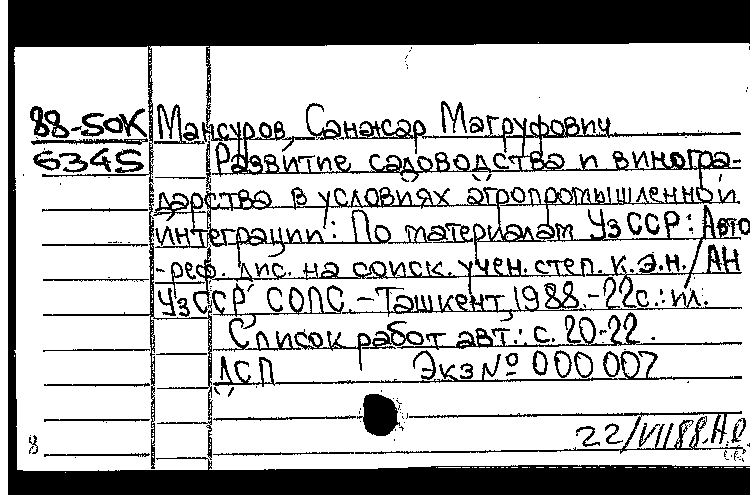 88-50К Мансуров, Санжар Магруфович.
6345 Развитие садоводства и виногра-
дарства в условиях агропромышленной
интеграции: По материалам УзССР: Авто
-реф. дис. на соиск. учен. степ. к.э.н. / АН
УзССР, СОПС. - Ташкент, 1988. - 22с.: ил.
Список работ авт.: с. 20-22.
ДСП Экз № 000 007
22/VII88.
8